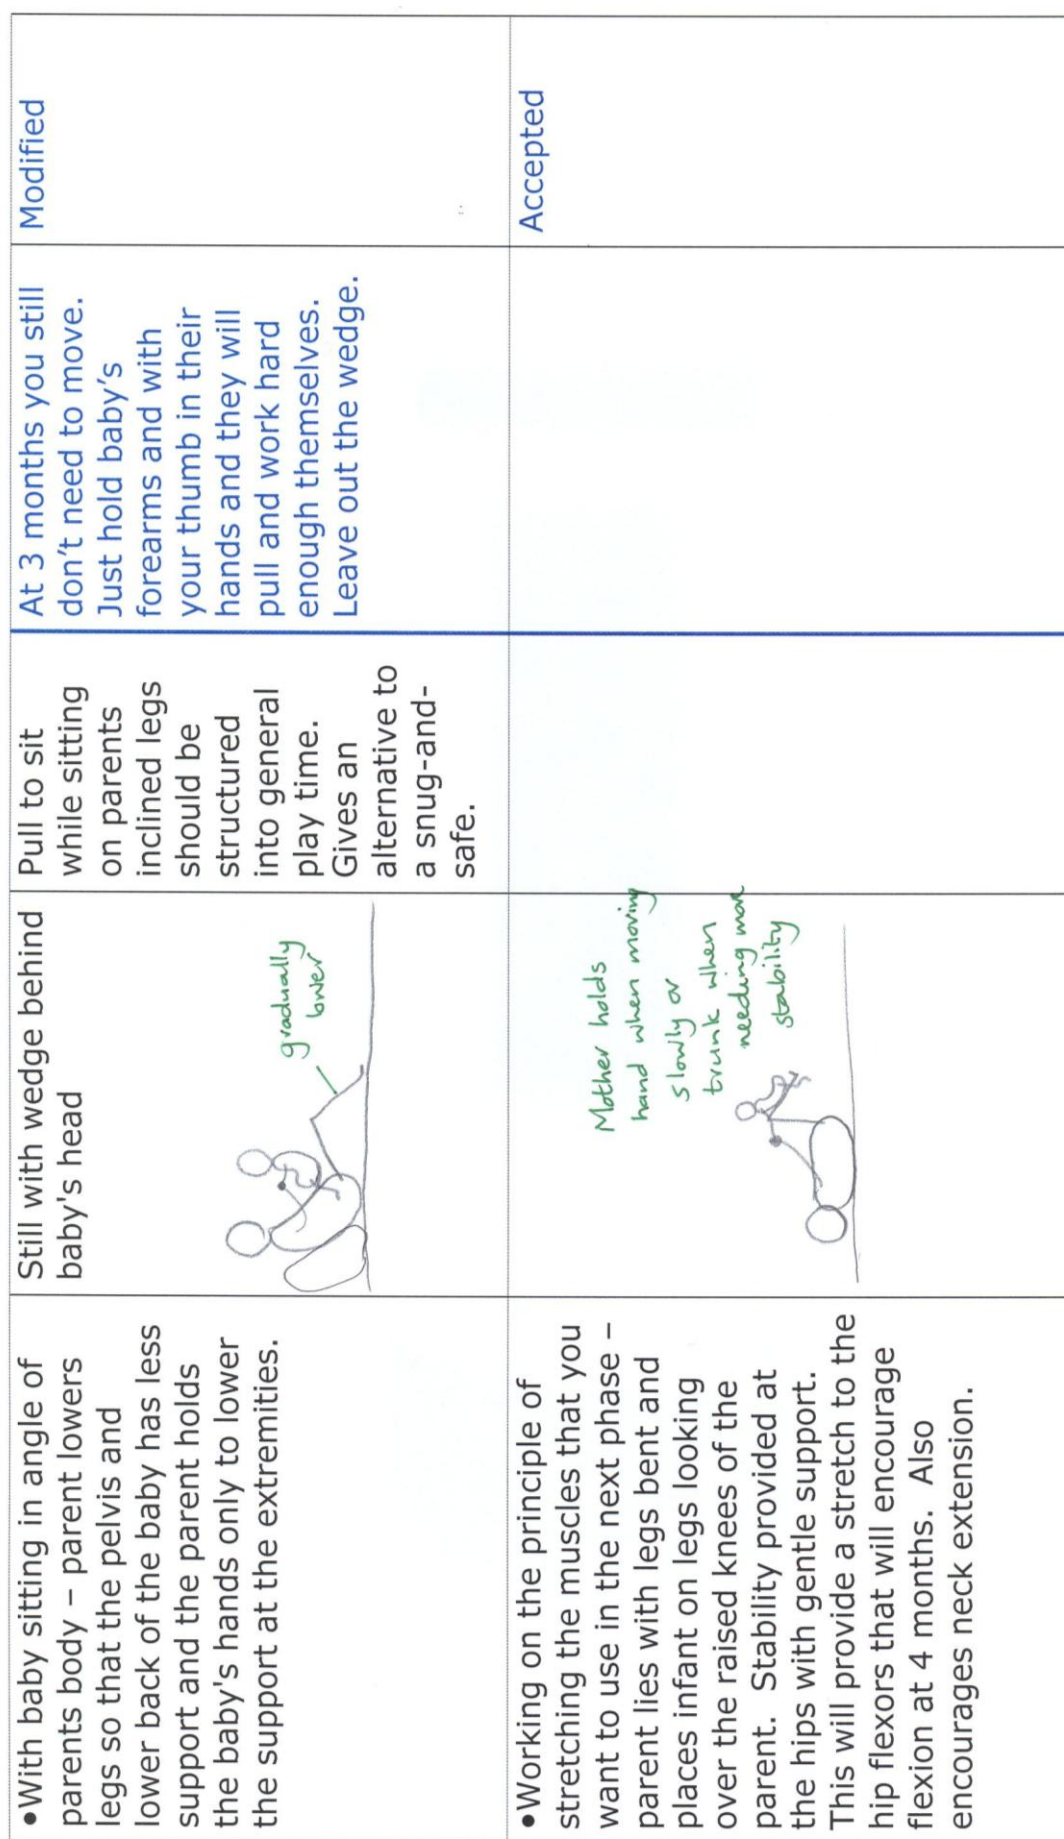 •With baby sitting in angle of
parents body – parent lowers
legs so that the pelvis and
lower back of the baby has less
support and the parent holds
the baby's hands only to lower
the support at the extremities.
Still with wedge behind
baby's head
gradually
lower
Pull to sit
while sitting
on parents
inclined legs
should be
structured
into general
play time.
Gives an
alternative to
a snug-and-
safe.
At 3 months you still
don't need to move.
Just hold baby's
forearms and with
your thumb in their
hands and they will
pull and work hard
enough themselves.
Leave out the wedge.
Modified
•Working on the principle of
stretching the muscles that you
want to use in the next phase –
parent lies with legs bent and
places infant on legs looking
over the raised knees of the
parent. Stability provided at
the hips with gentle support.
This will provide a stretch to the
hip flexors that will encourage
flexion at 4 months. Also
encourages neck extension.
Mother holds
hand when moving
slowly or
trunk when
needing more
stability
Accepted